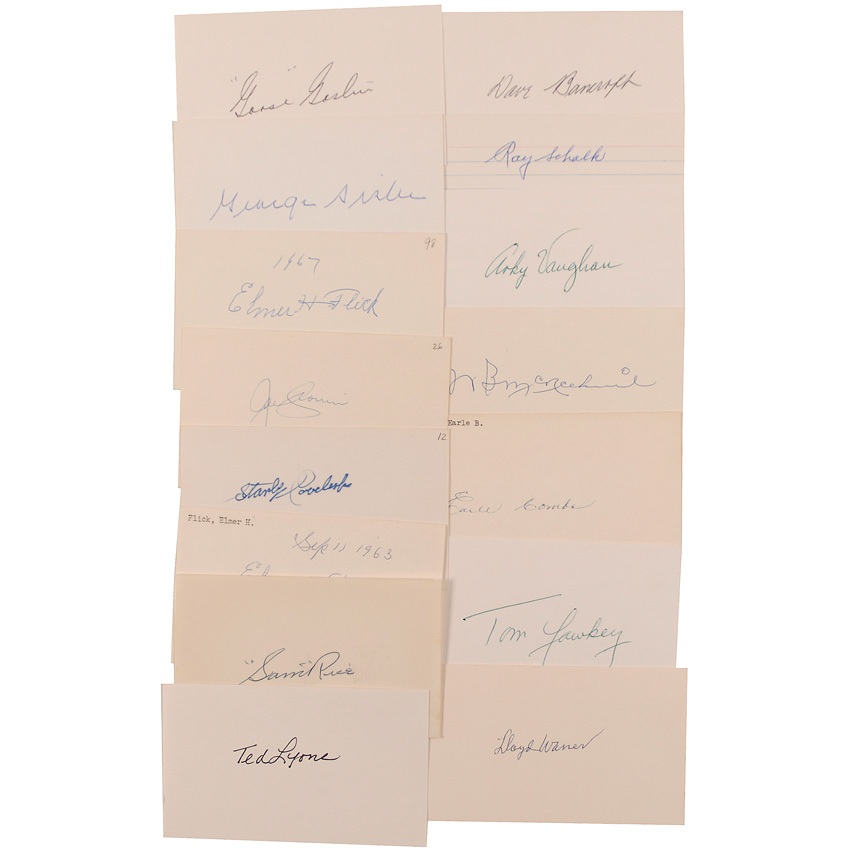 "Goose" Goslin
George Sisler
98
1967
Elmer H Flick
26
Joe Cronin
12
Stanley Coveleski
Flick, Elmer H.
Sep 11 1963
"Sam" Rice
Ted Lyons
Dave Bancroft
Ray Schalk
Arky Vaughan
B McKechnie
Earle B.
Earle Combs
Tom Yawkey
Lloyd Waner